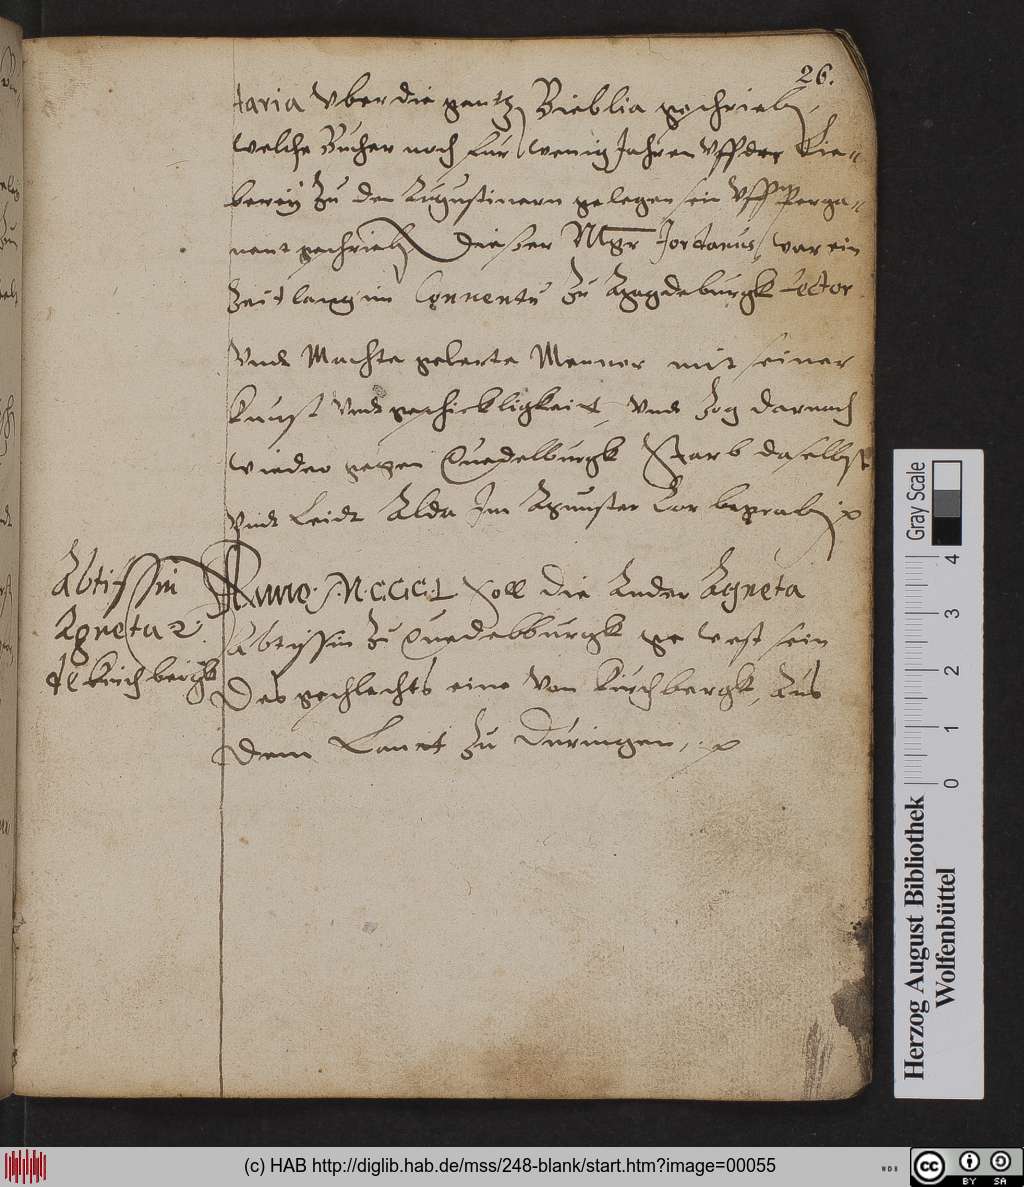 26.
taria vber die gantz Bieblia geschrieben,
welche Bücher noch für wenig Jahren vff der Lie-
berey zu den Augustinern gelegen sein vff Perga-
nent geschrieben Dießer Mgr Jordanus, war ein
Zeit lang im Conventu zu Magdeburgk Lector
vnd Machte gelerte Menner mit seiner
Kunst vnd geschickligkeit, vnd zog darnach
wieder gegen Quedelburgk Starb daselbst
vnd Leidt Alda Im Munster Cor begraben
Abtissin
Agneta 2.
de Kirchbergk
Anno. MCCCL soll die Ander Agneta
Abtissin zu Quedelburgk ge west sein
Des geschlechts eine von Kirchbergk, Aus
dem Landt zu Duringen,
Gray Scale
0 1 2 3 4
Herzog August Bibliothek
Wolfenbüttel
(c) HAB http://diglib.hab.de/mss/248-blank/start.htm?image=00055
WDB
cc
BY SA